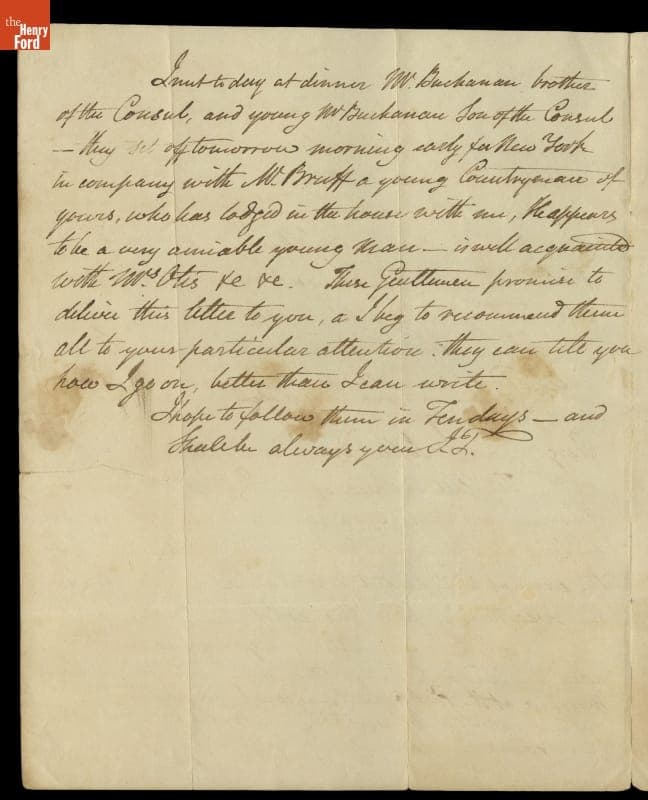 the
Henry
Ford
I met to day at dinner Mr. Buchanan brother
of the Consul, and young Mr Buchanan Son of the Consul
— they set off tomorrow morning early for New York
in company with Mr. Bruff a young Countryman of
yours, who has lodged in the house with me, He appears
to be a very amiable young man — is well acquainted
with Mrs Otis &c &c. These Gentlemen promise to
deliver this letter to you, a I beg to recommend them
all to your particular attention. they can tell you
how I go on, better than I can write.
I hope to follow them in Ten days — and
Shall be always yours